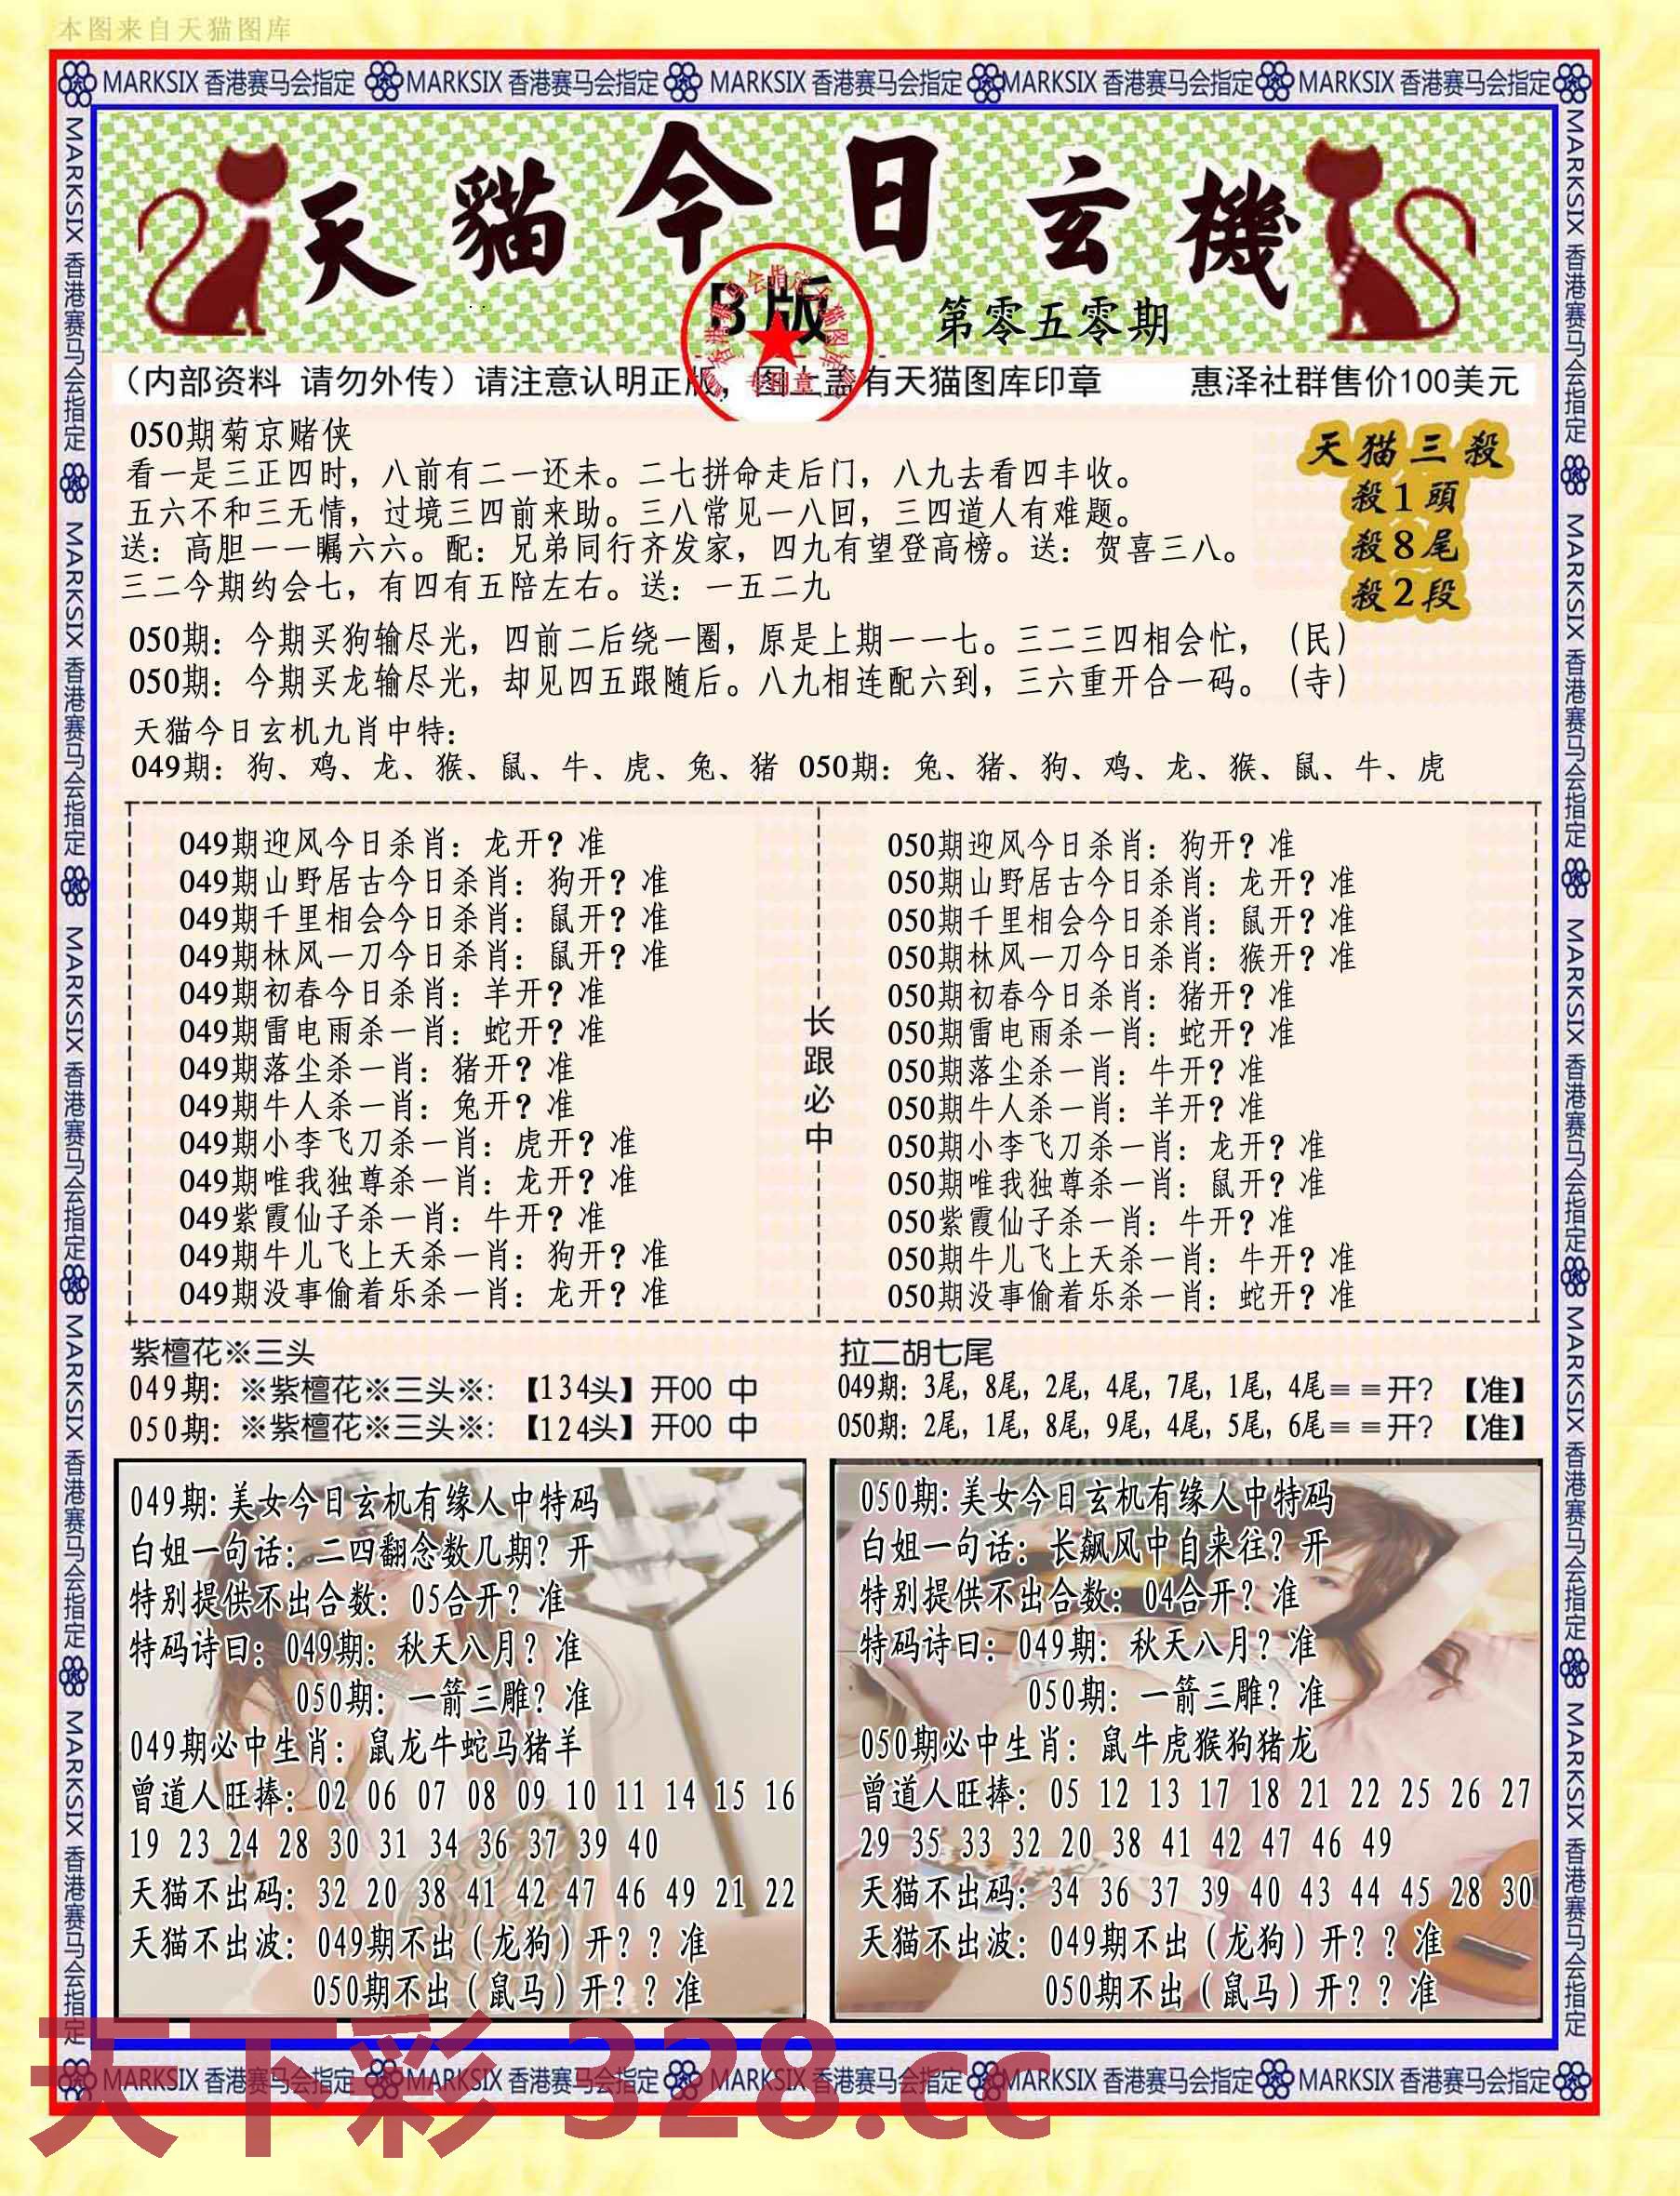 本图来自天猫图库
MARKSIX 香港赛马会指定 MARKSIX 香港赛马会指定 MARKSIX 香港赛马会指定 MARKSIX 香港赛马会指定 MARKSIX 香港赛马会指定
天貓今日玄機
B版
第零五零期
专用章
（内部资料 请勿外传）请注意认明正版，图上盖有天猫图库印章 惠泽社群售价100美元
050期菊京赌侠
看一是三正四时，八前有二一还未。二七拼命走后门，八九去看四丰收。
五六不和三无情，过境三四前来助。三八常见一八回，三四道人有难题。
送：高胆一一瞩六六。配：兄弟同行齐发家，四九有望登高榜。送：贺喜三八。
三二今期约会七，有四有五陪左右。送：一五二九
天猫三殺
殺1頭
殺8尾
殺2段
050期：今期买狗输尽光，四前二后绕一圈，原是上期一一七。三二三四相会忙，（民）
050期：今期买龙输尽光，却见四五跟随后。八九相连配六到，三六重开合一码。（寺）
天猫今日玄机九肖中特：
049期：狗、鸡、龙、猴、鼠、牛、虎、兔、猪 050期：兔、猪、狗、鸡、龙、猴、鼠、牛、虎
049期迎风今日杀肖：龙开？准
049期山野居古今日杀肖：狗开？准
049期千里相会今日杀肖：鼠开？准
049期林风一刀今日杀肖：鼠开？准
049期初春今日杀肖：羊开？准
049期雷电雨杀一肖：蛇开？准
049期落尘杀一肖：猪开？准
049期牛人杀一肖：兔开？准
049期小李飞刀杀一肖：虎开？准
049期唯我独尊杀一肖：龙开？准
049紫霞仙子杀一肖：牛开？准
049期牛儿飞上天杀一肖：狗开？准
049期没事偷着乐杀一肖：龙开？准
长跟必中
050期迎风今日杀肖：狗开？准
050期山野居古今日杀肖：龙开？准
050期千里相会今日杀肖：鼠开？准
050期林风一刀今日杀肖：猴开？准
050期初春今日杀肖：猪开？准
050期雷电雨杀一肖：蛇开？准
050期落尘杀一肖：牛开？准
050期牛人杀一肖：羊开？准
050期小李飞刀杀一肖：龙开？准
050期唯我独尊杀一肖：鼠开？准
050紫霞仙子杀一肖：牛开？准
050期牛儿飞上天杀一肖：牛开？准
050期没事偷着乐杀一肖：蛇开？准
紫檀花※三头
049期：※紫檀花※三头※：【134头】开00 中
050期：※紫檀花※三头※：【124头】开00 中
拉二胡七尾
049期：3尾，8尾，2尾，4尾，7尾，1尾，4尾＝＝开？【准】
050期：2尾，1尾，8尾，9尾，4尾，5尾，6尾＝＝开？【准】
049期：美女今日玄机有缘人中特码
白姐一句话：二四翻念数几期？开
特别提供不出合数：05合开？准
特码诗曰：049期：秋天八月？准
050期：一箭三雕？准
049期必中生肖：鼠龙牛蛇马猪羊
曾道人旺捧：02 06 07 08 09 10 11 14 15 16
19 23 24 28 30 31 34 36 37 39 40
天猫不出码：32 20 38 41 42 47 46 49 21 22
天猫不出波：049期不出（龙狗）开？？准
050期不出（鼠马）开？？准
050期：美女今日玄机有缘人中特码
白姐一句话：长飙风中自来往？开
特别提供不出合数：04合开？准
特码诗曰：049期：秋天八月？准
050期：一箭三雕？准
050期必中生肖：鼠牛虎猴狗猪龙
曾道人旺捧：05 12 13 17 18 21 22 25 26 27
29 35 33 32 20 38 41 42 47 46 49
天猫不出码：34 36 37 39 40 43 44 45 28 30
天猫不出波：049期不出（龙狗）开？？准
050期不出（鼠马）开？？准
MARKSIX 香港赛马会指定 MARKSIX 香港赛马会指定 MARKSIX 香港赛马会指定 MARKSIX 香港赛马会指定
MARKSIX 香港赛马会指定 MARKSIX 香港赛马会指定 MARKSIX 香港赛马会指定 MARKSIX 香港赛马会指定
MARKSIX 香港赛马会指定 MARKSIX 香港赛马会指定 MARKSIX 香港赛马会指定 MARKSIX 香港赛马会指定 MARKSIX 香港赛马会指定
天下彩 328.cc